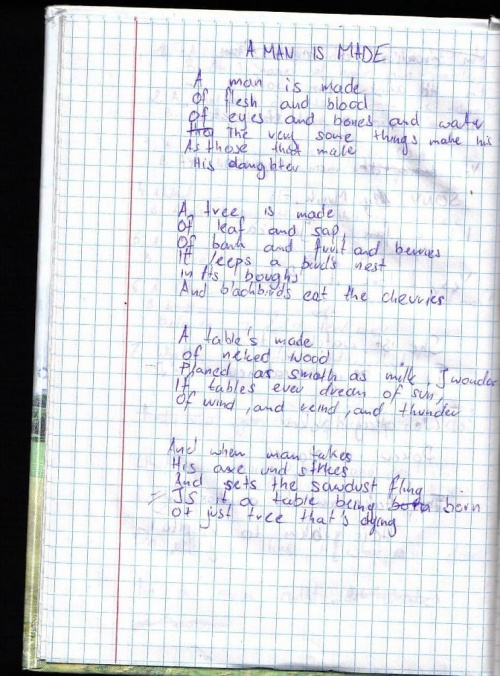 A MAN IS MADE
A man is made
Of flesh and blood
Of eyes and bones and water
The very same things make his
As those that make
His daughter
A tree is made
Of leaf and sap,
Of bark and fruit and berries
It keeps a bird's nest
In its boughs
And blackbirds eat the cherries
A table's made
Of neked wood
Planed as smoth as milk I wonder
If tables ever dream of sun,
Of wind, and reind, and thunder
And when man takes
His axe and strikes
And sets the sawdust fling
Is it a table being born
Or just tree that's dying